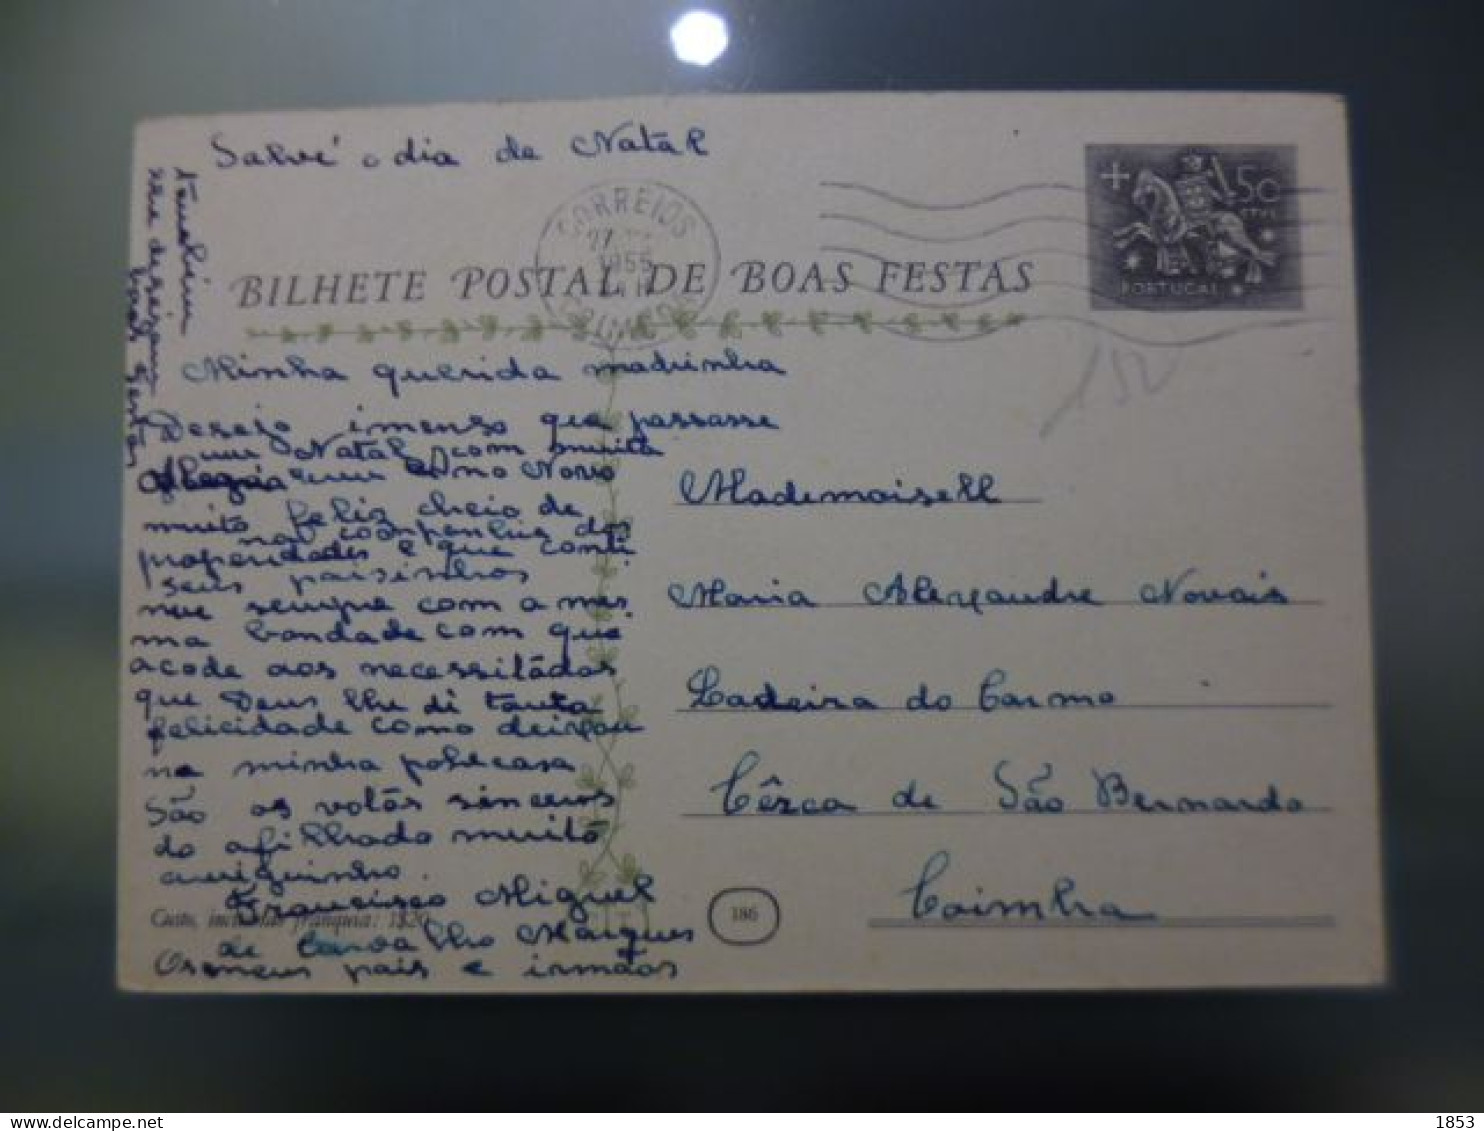 Salvé o dia de Natál
CORREIOS
1955
+ $50
CTVS
PORTUGAL
BILHETE POSTAL DE BOAS FESTAS
152
Minha querida madrinha
Desejo imenso que passasse
um Natal, com muita
Alegria e um Ano Novo
muito feliz cheio de
na companhia dos
properidades e que conti
seus paisinhos
nue sempre com a mes
ma bondade com que
acode aos necessitádos
que Deus lhe di tanta
felicidade como deixou
na minha pobre casa
São os votos sinceros
do afilhado muitó
amiguinho
Francisco Miguel
de Carvalho Marques
Os meus pais e irmãos
também
lhe desejam
boas Festas
Custo, incluindo franquia: 1$20
186
Mademoisell
Maria Alexandre Novais
Ladeira do Carmo
Cêrca de São Bernardo
Coimbra
delcampe.net
1853